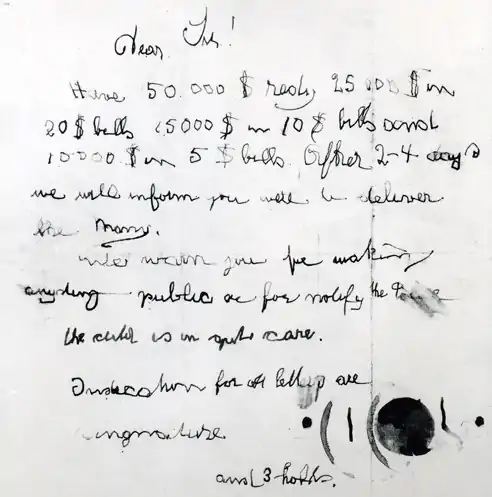 Dear Sir!
Have 50.000 $ redy 25 000 $ in
20 $ bills 15000 $ in 10 $ bills and
10000 $ in 5 $ bills After 2-4 days
we will inform you were to deliver
the Mony.
We warn you for making
anyding public or for notify the Police
the child is in gute care.
Indication for all letters are
singnature
and 3 holds.